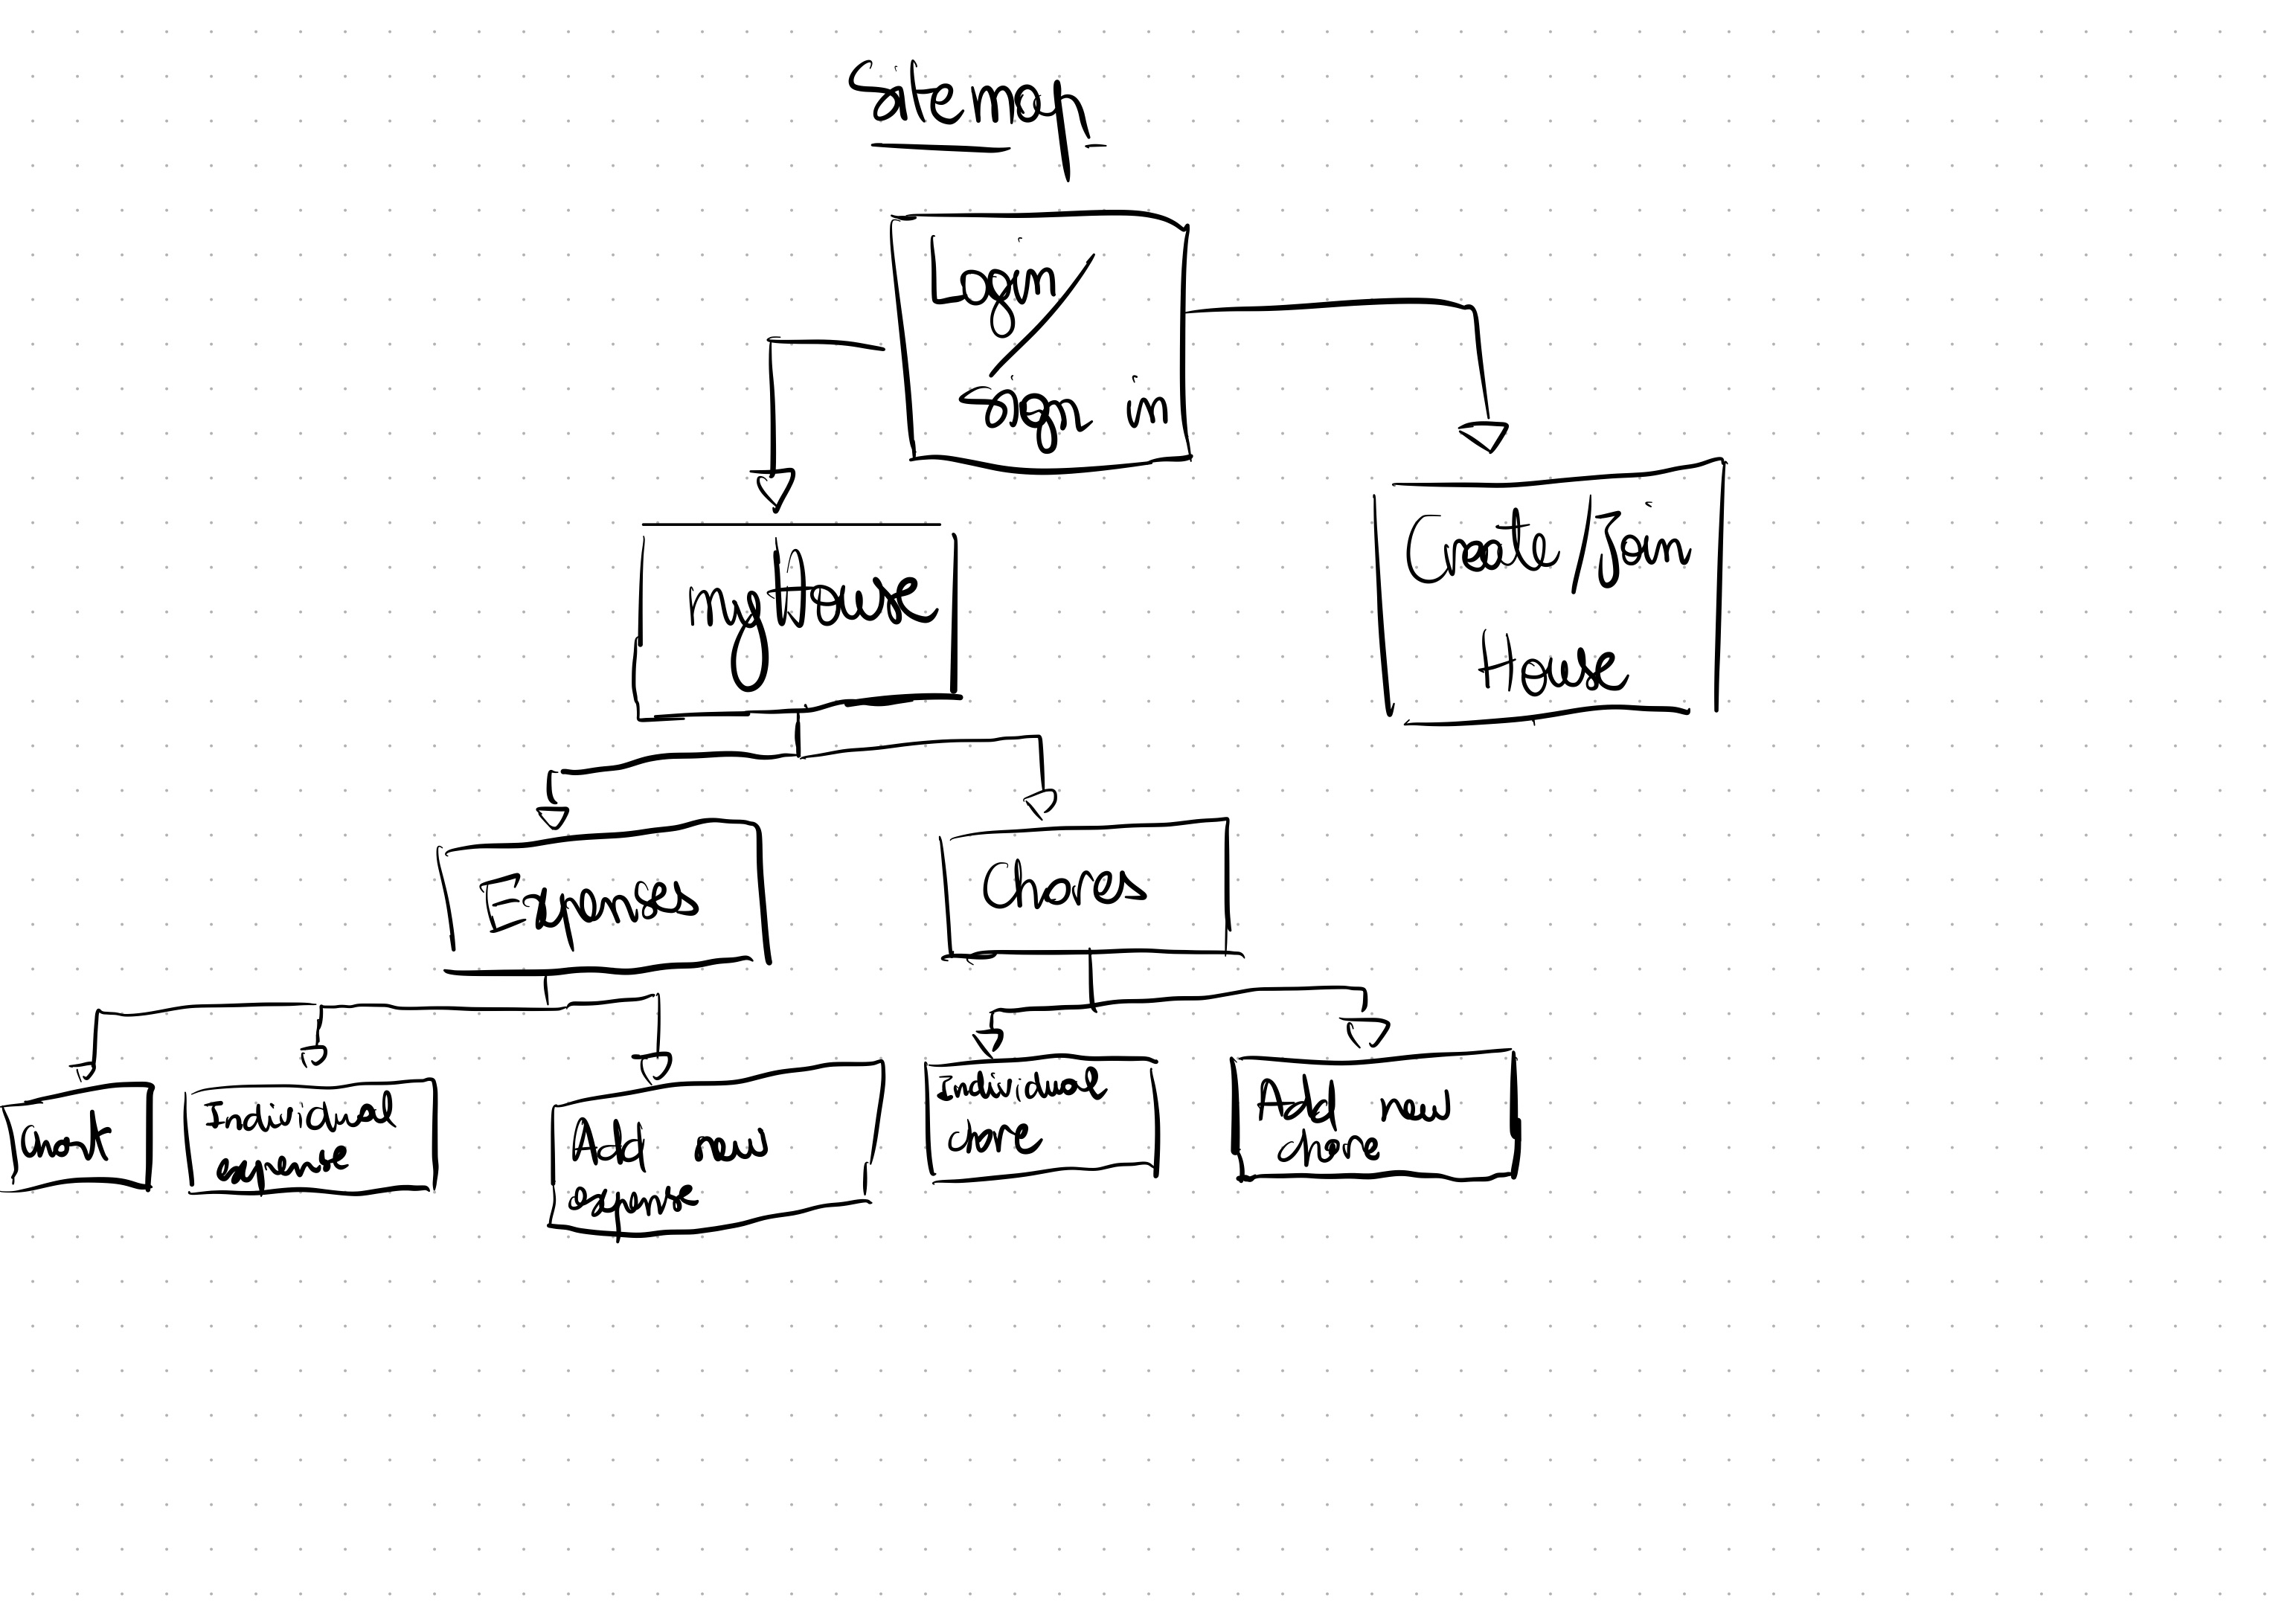 Sitemap
Login
/
Sign in
my House
Create / Join
House
Expenses
Chores
Individual
expense
Add new
expense
Individual
chore
Add new
chore